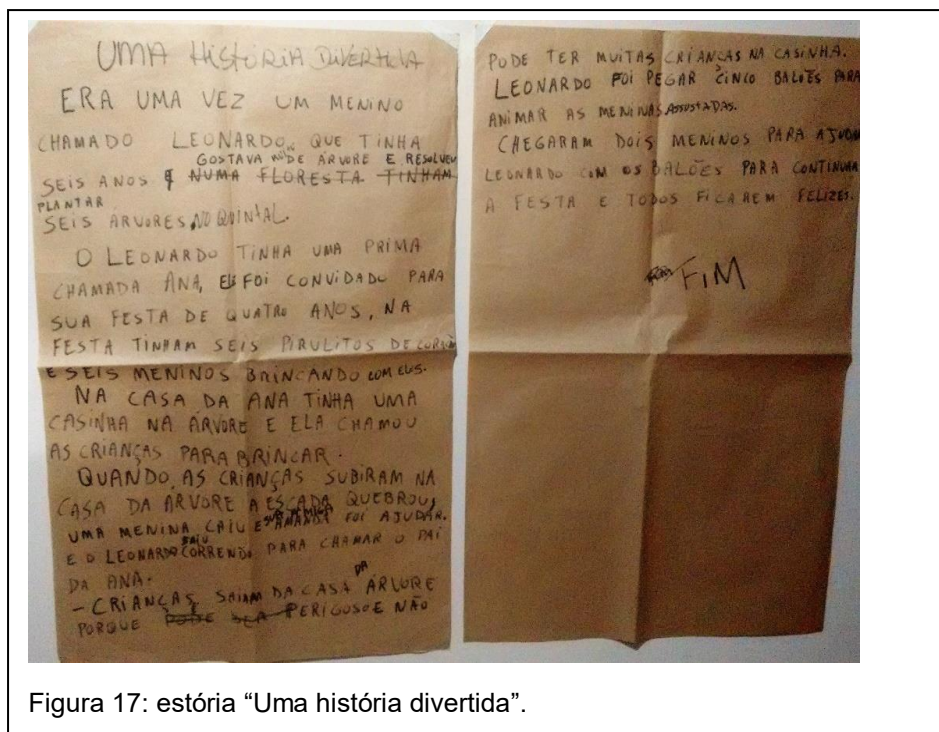 UMA HISTÓRIA DIVERTIDA
ERA UMA VEZ UM MENINO
CHAMADO LEONARDO, QUE TINHA
GOSTAVA DE ÁRVORE E RESOLVEU
SEIS ANOS NUMA FLORESTA TINHAM
PLANTAR
SEIS ÁRVORES, NO QUINTAL.
O LEONARDO TINHA UMA PRIMA
CHAMADA ANA, FOI CONVIDADO PARA
SUA FESTA DE QUATRO ANOS, NA
FESTA TINHAM SEIS PIRULITOS DE
E SEIS MENINOS BRINCANDO COM ELES.
NA CASA DA ANA TINHA UMA
CASINHA NA ÁRVORE E ELA CHAMOU
AS CRIANÇAS PARA BRINCAR.
QUANDO AS CRIANÇAS SUBIRAM NA
CASA DA ARVORE A ESCADA QUEBROU,
UMA MENINA CAIU E SUA AMIGA AMANDA FOI AJUDAR.
E O LEONARDO SAIU CORRENDO PARA CHAMAR O PAI
DA ANA.
- CRIANÇAS, SAIAM DA CASA DA ÁRVORE
PORQUE PODE SER PERIGOSO E NÃO
PODE TER MUITAS CRIANÇAS NA CASINHA.
LEONARDO FOI PEGAR CINCO BALÕES PARA
ANIMAR AS MENINAS ASSUSTADAS.
CHEGARAM DOIS MENINOS PARA AJUDAR
LEONARDO COM OS BALÕES PARA CONTINUAR
A FESTA E TODOS FICAREM FELIZES.
FIM
Figura 17: estória “Uma história divertida”.